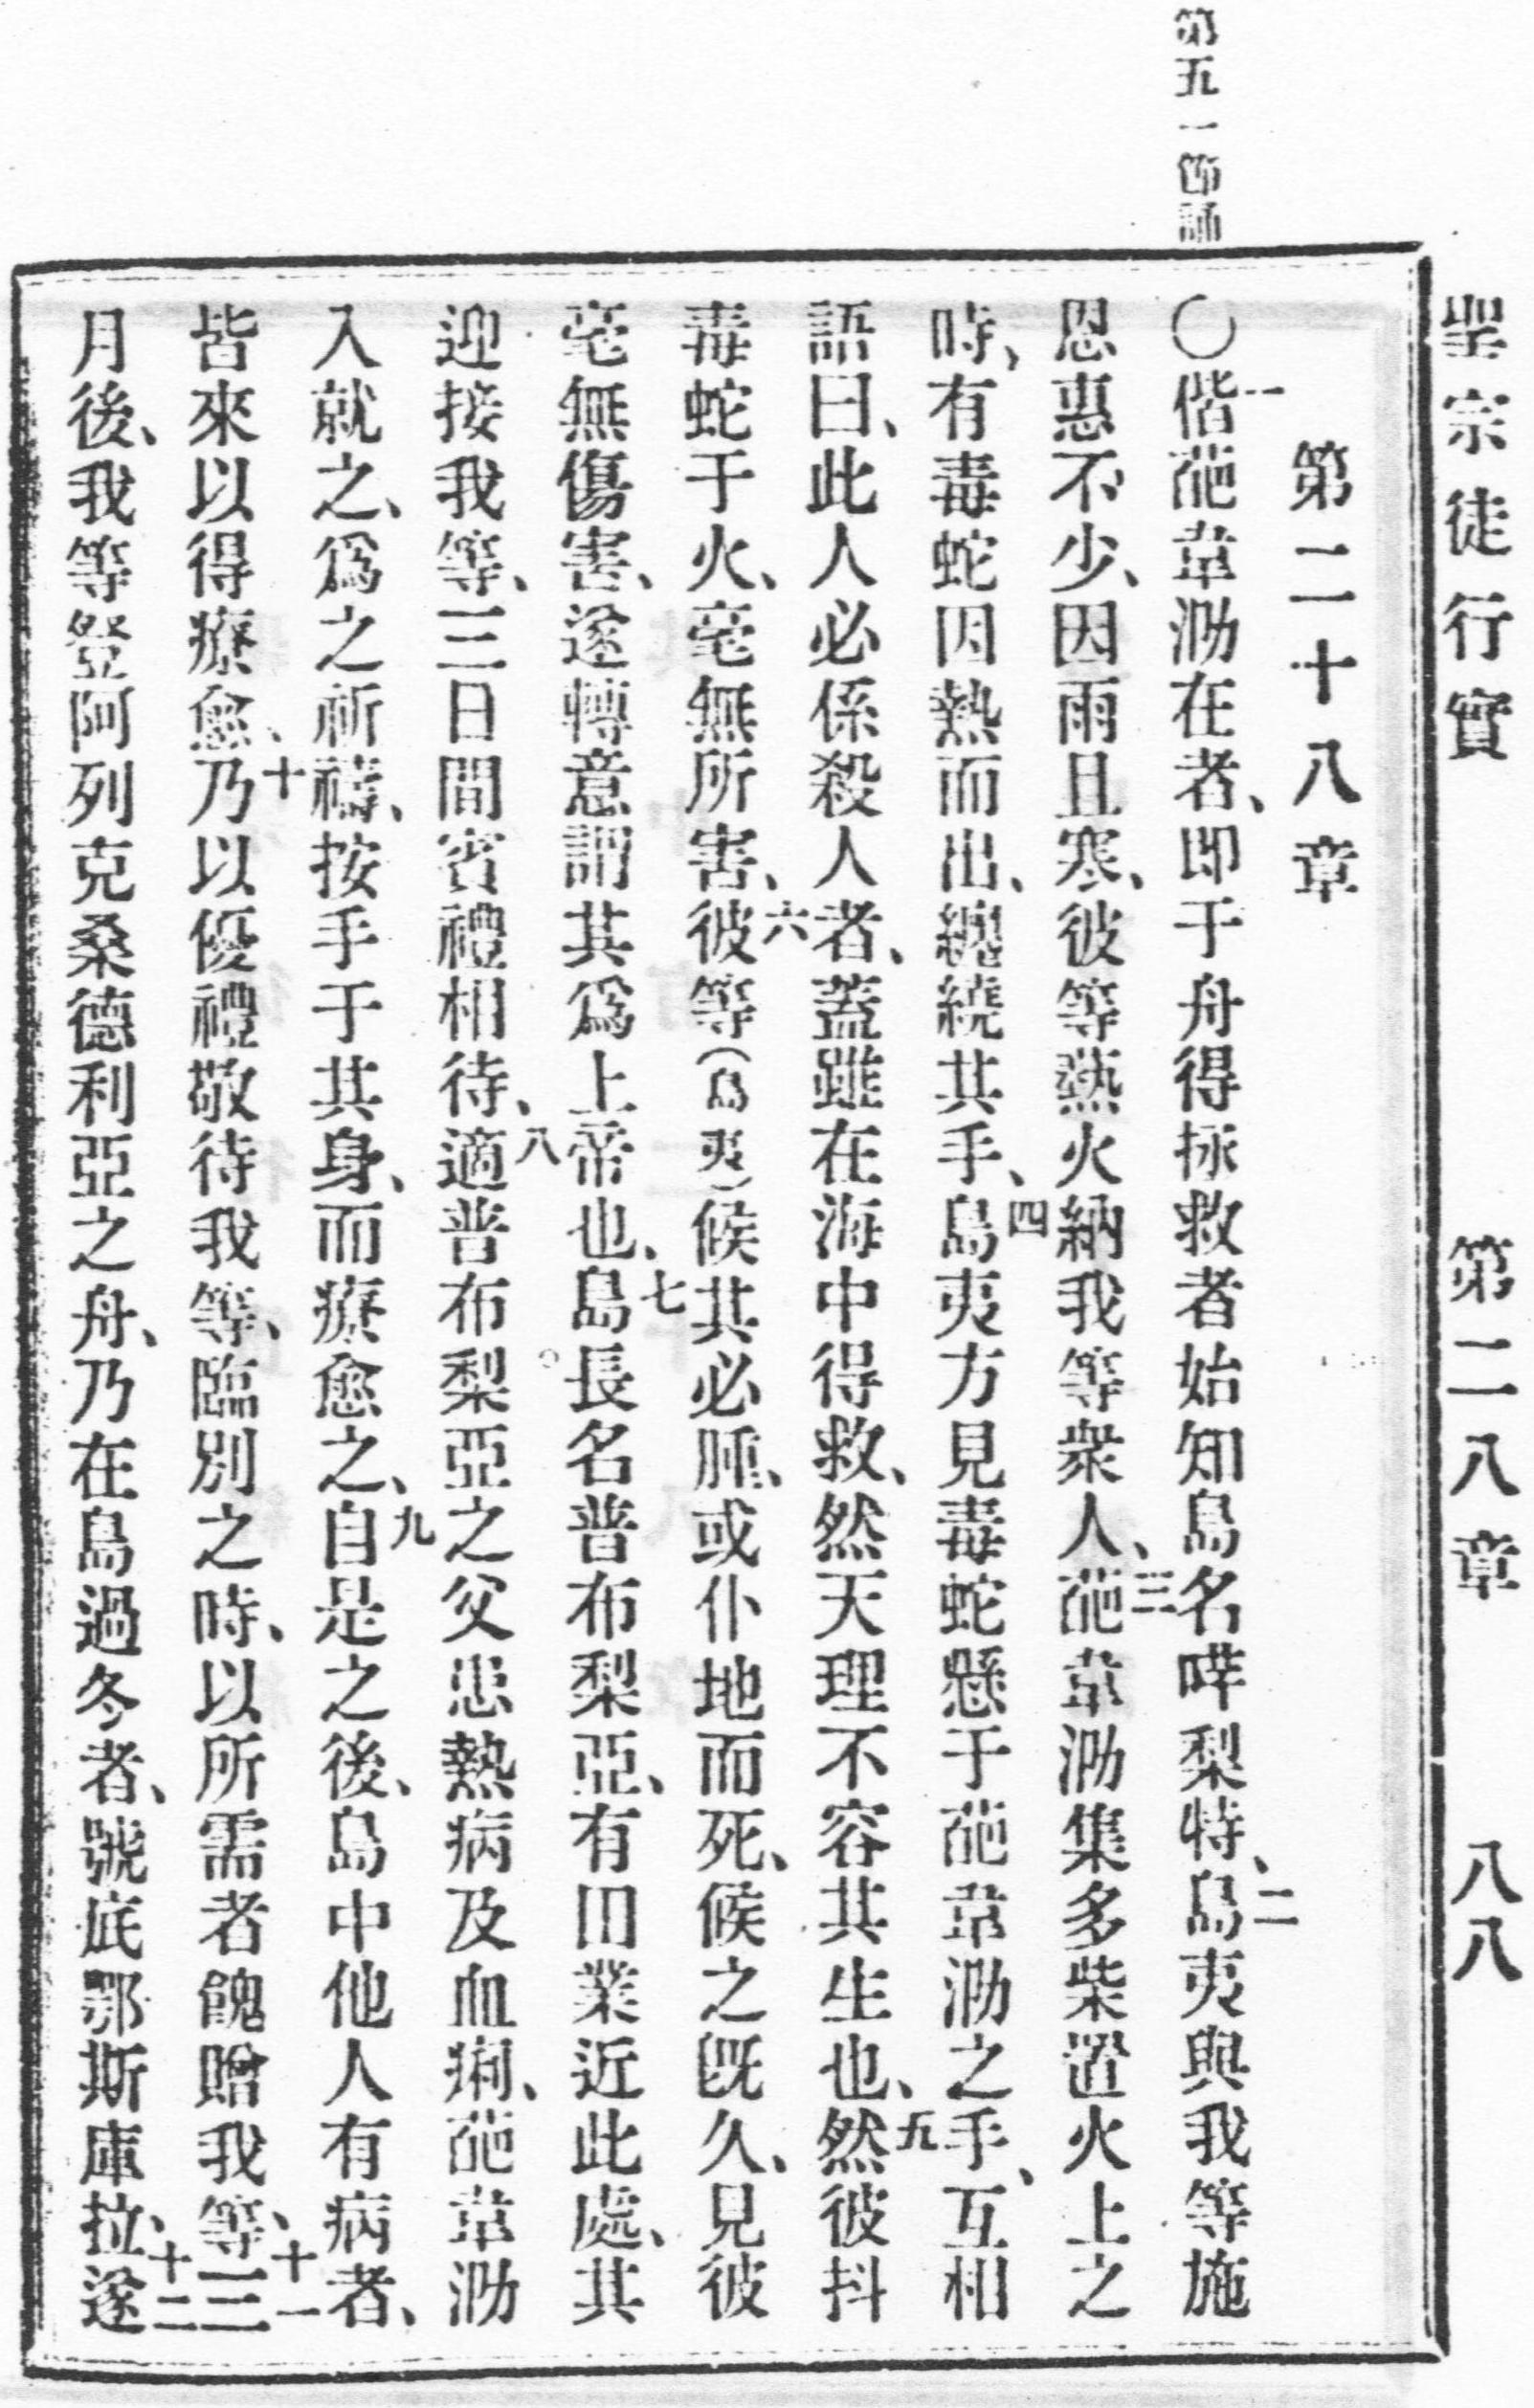 聖宗徒行實 第二八章 八八
第五一節誦
第二十八章
〇一偕葩韋泐在者、即于舟得拯救者始知島名嘩梨特、二島夷與我等施
恩惠不少、因雨且寒、彼等爇火納我等衆人、三葩韋泐集多柴置火上之
時、有毒蛇因熱而出、纏繞其手、四島夷方見毒蛇懸于葩韋泐之手、互相
語曰、此人必係殺人者、蓋雖在海中得救、然天理不容其生也、五然彼抖
毒蛇于火、毫無所害、六彼等(島夷)候其必腫、或仆地而死、候之旣久、見彼
毫無傷害、遂轉意謂其爲上帝也、七島長名普布梨亞、有田業近此處、其
迎接我等、三日間賓禮相待、八適普布梨亞之父患熱病及血痢、葩韋泐
入就之、爲之祈禱、按手于其身、而療愈之、九自是之後、島中他人有病者、
皆來以得療愈、十乃以優禮敬待我等、臨別之時、以所需者餽贈我等、十一三
月後、我等登阿列克桑德利亞之舟、乃在島過冬者、號底鄂斯庫拉、十二遂